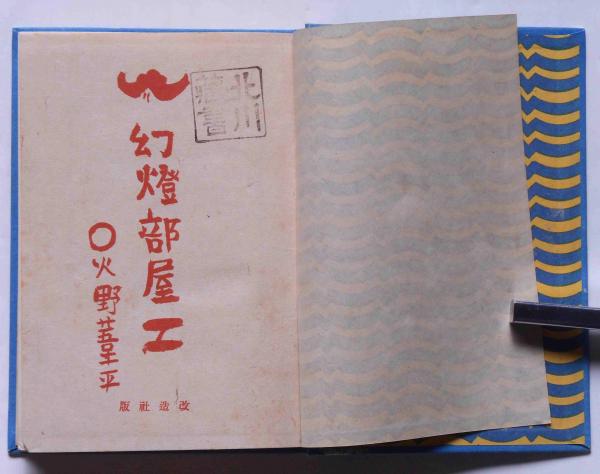 北川
藏書
幻燈部屋
火野葦平
改造社版